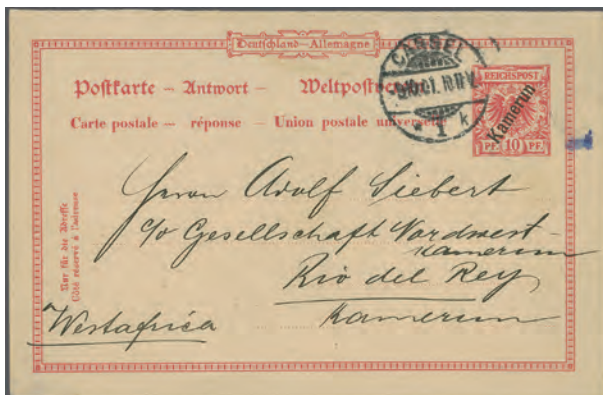 Deutschland–Allemagne
Postkarte – Antwort – Weltpostverein
Carte postale – réponse – Union postale universelle
CASSEL
1 k
REICHSPOST
Kamerun
PF. 10 PF.
Nur für die Adresse
Côté réservé à l'adresse
Herrn Adolf Siebert
c/o Gesellschaft Nordwest-
Kamerun
Rio del Rey
Westafrica
Kamerun